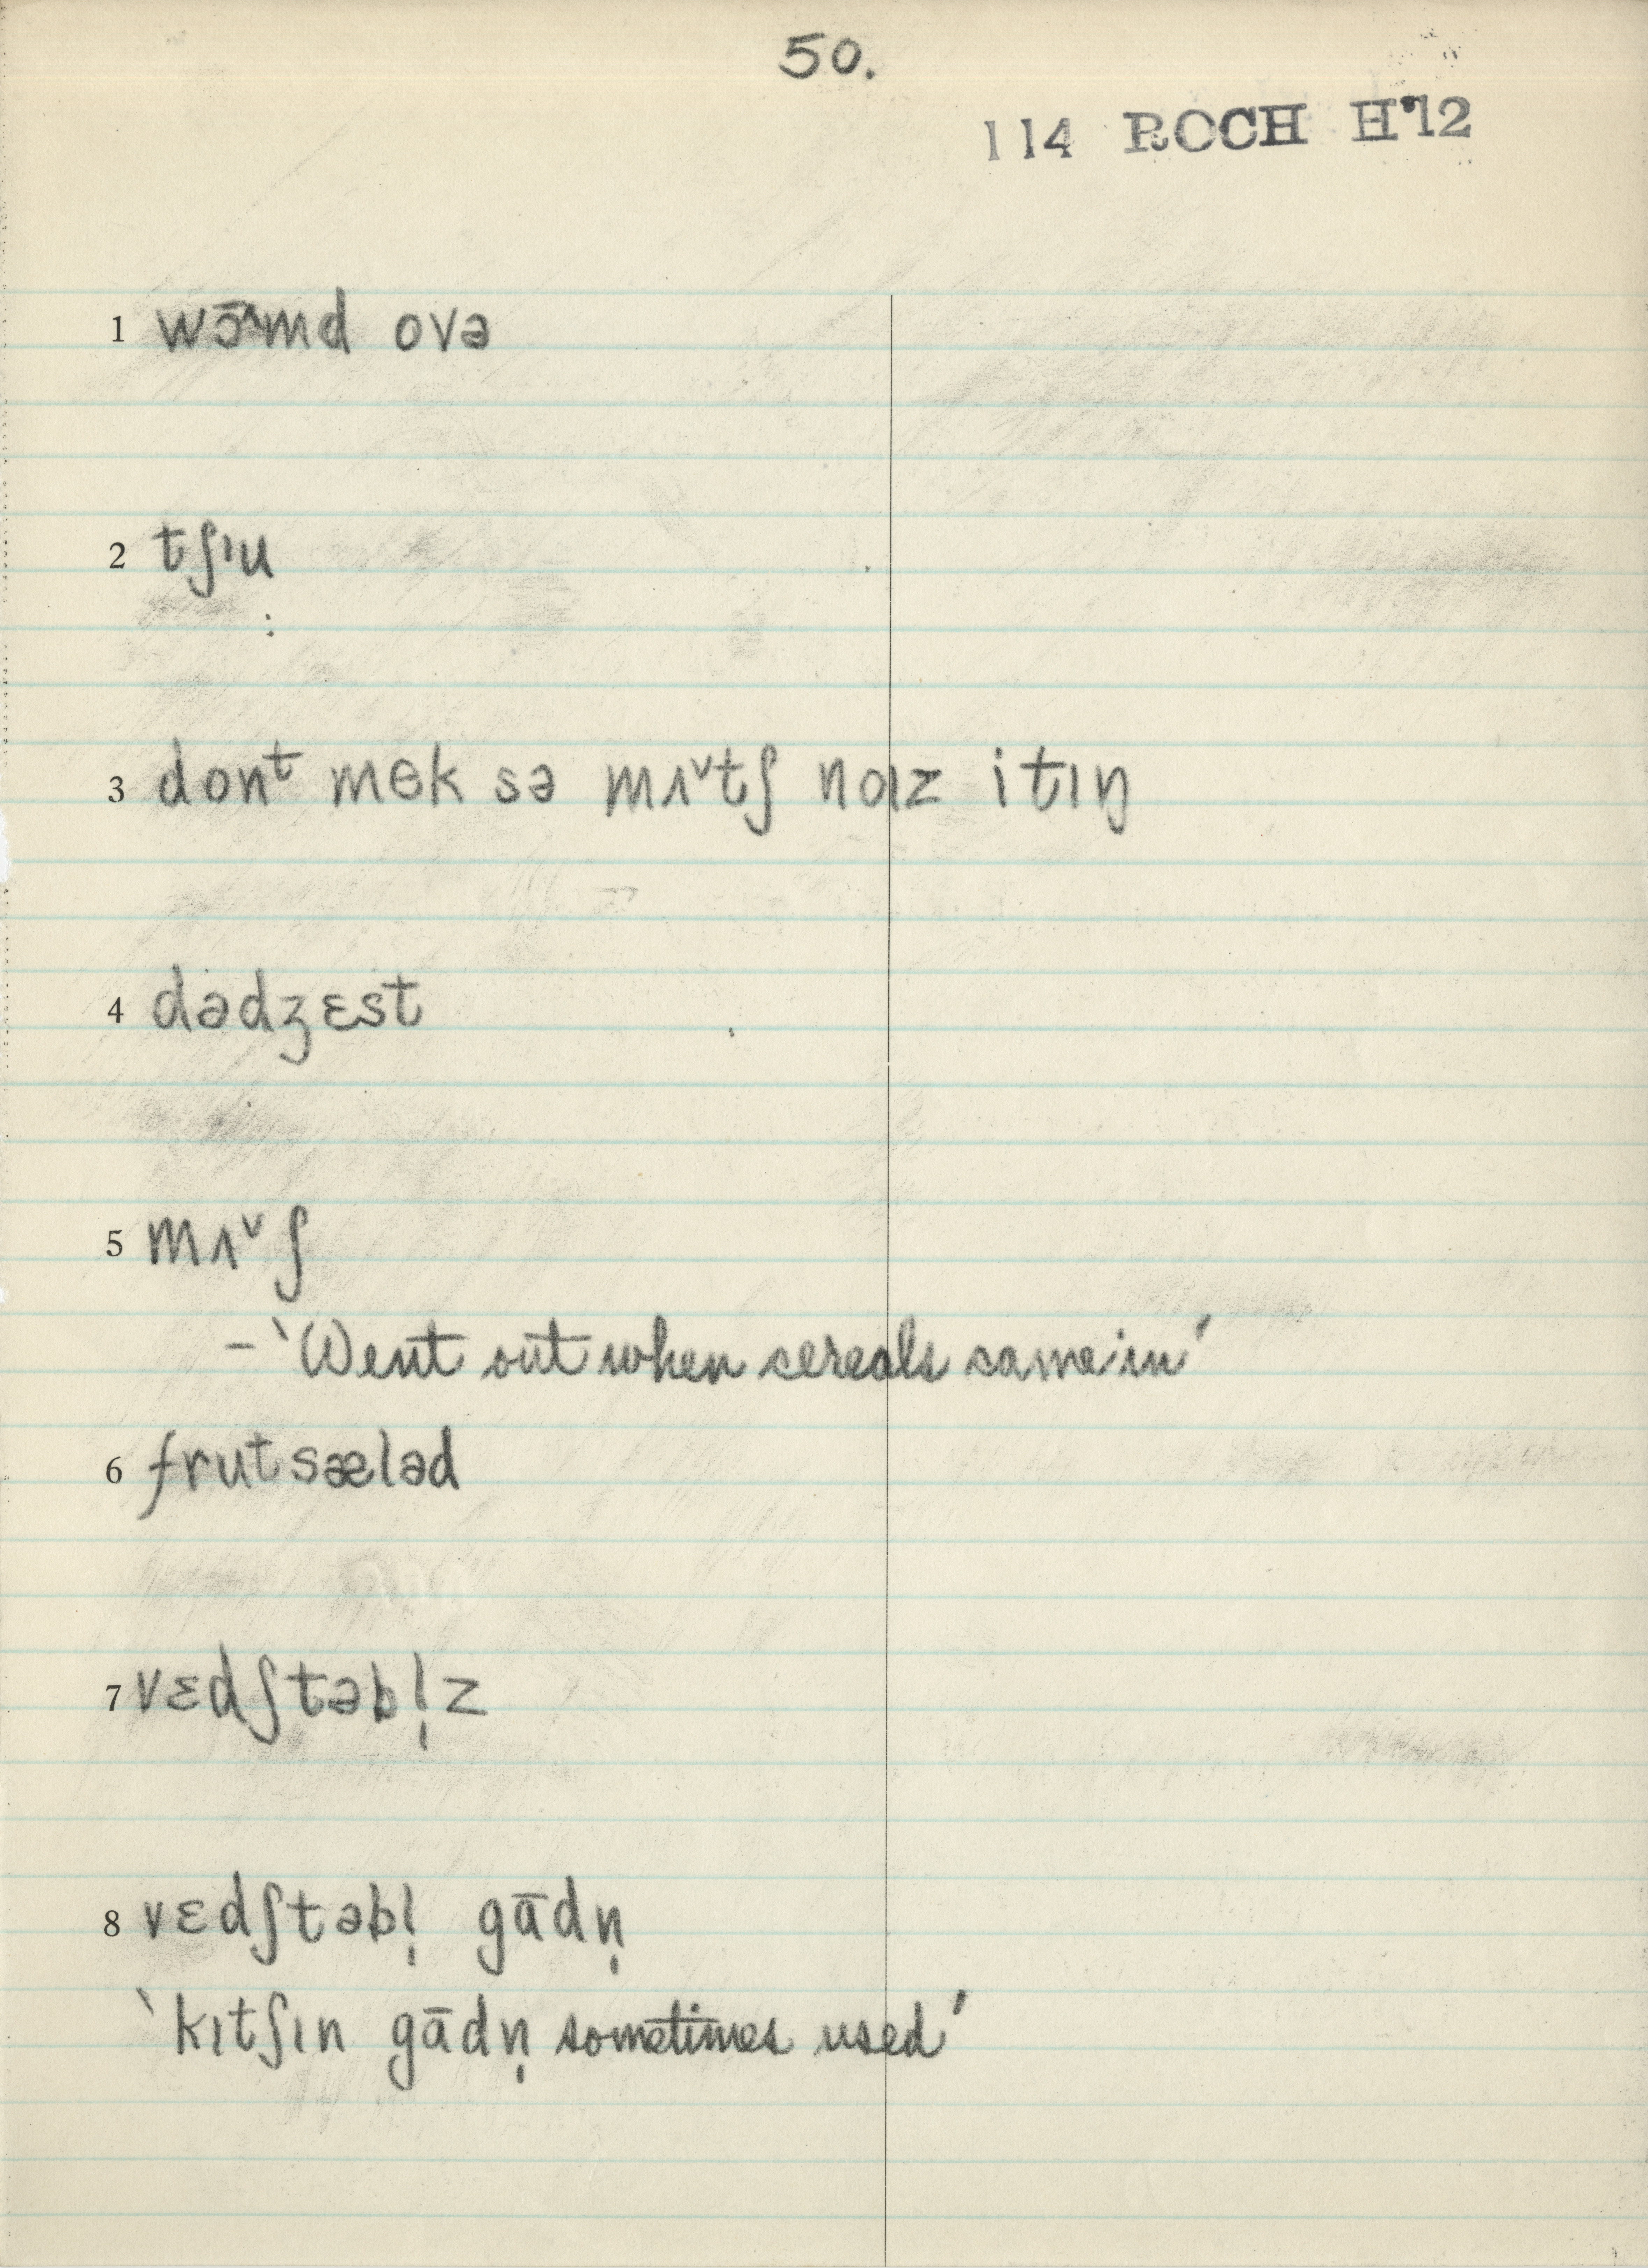 50.
114 ROCH H'12
1 wɔ̄^md ovə
2 tʃɪu
3 donᵗ mek sə mʌˇtʃ noɪz itɪŋ
4 dədʒɛst
5 mʌˇʃ
– ‘Went out when cereals came in’
6 frutsæləd
7 vɛdʃtəbl̩z
8 vɛdʃtəbl̩ gādn̩
‘kɪtʃɪn gādn̩ sometimes used’